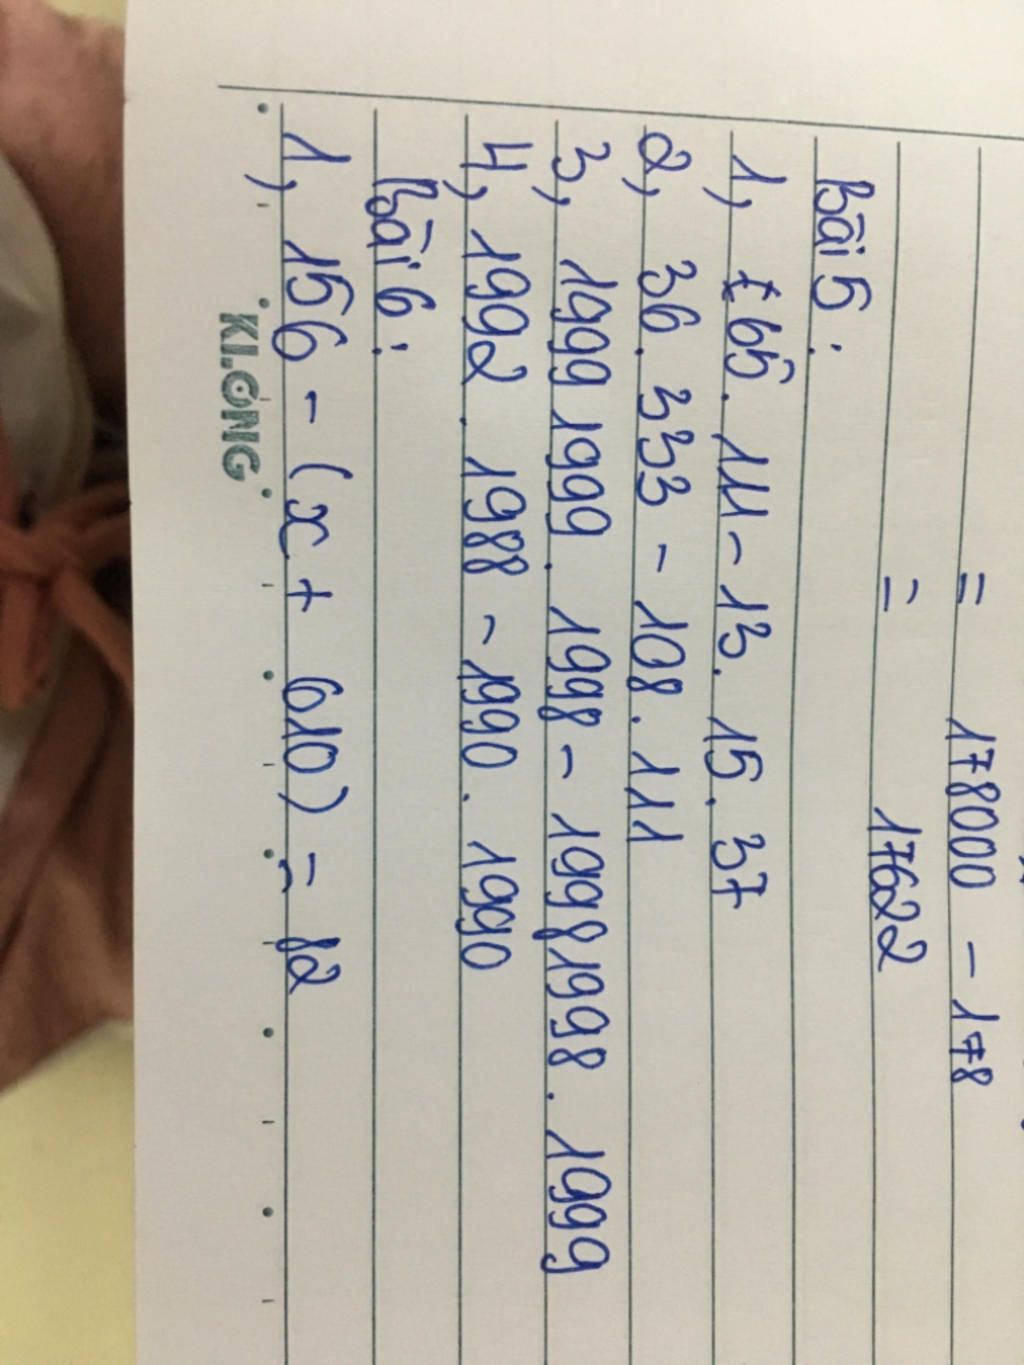 = 178000 - 178
= 17622
Bài 5 :
1, 65 . 111 - 13 . 15 . 37
2, 36 . 333 - 108 . 111
3, 1999 1999 . 1998 - 1998 1998 . 1999
4, 1992 . 1988 - 1990 . 1990
Bài 6 :
1, 156 - (x + 610) = 82
KI.ONG